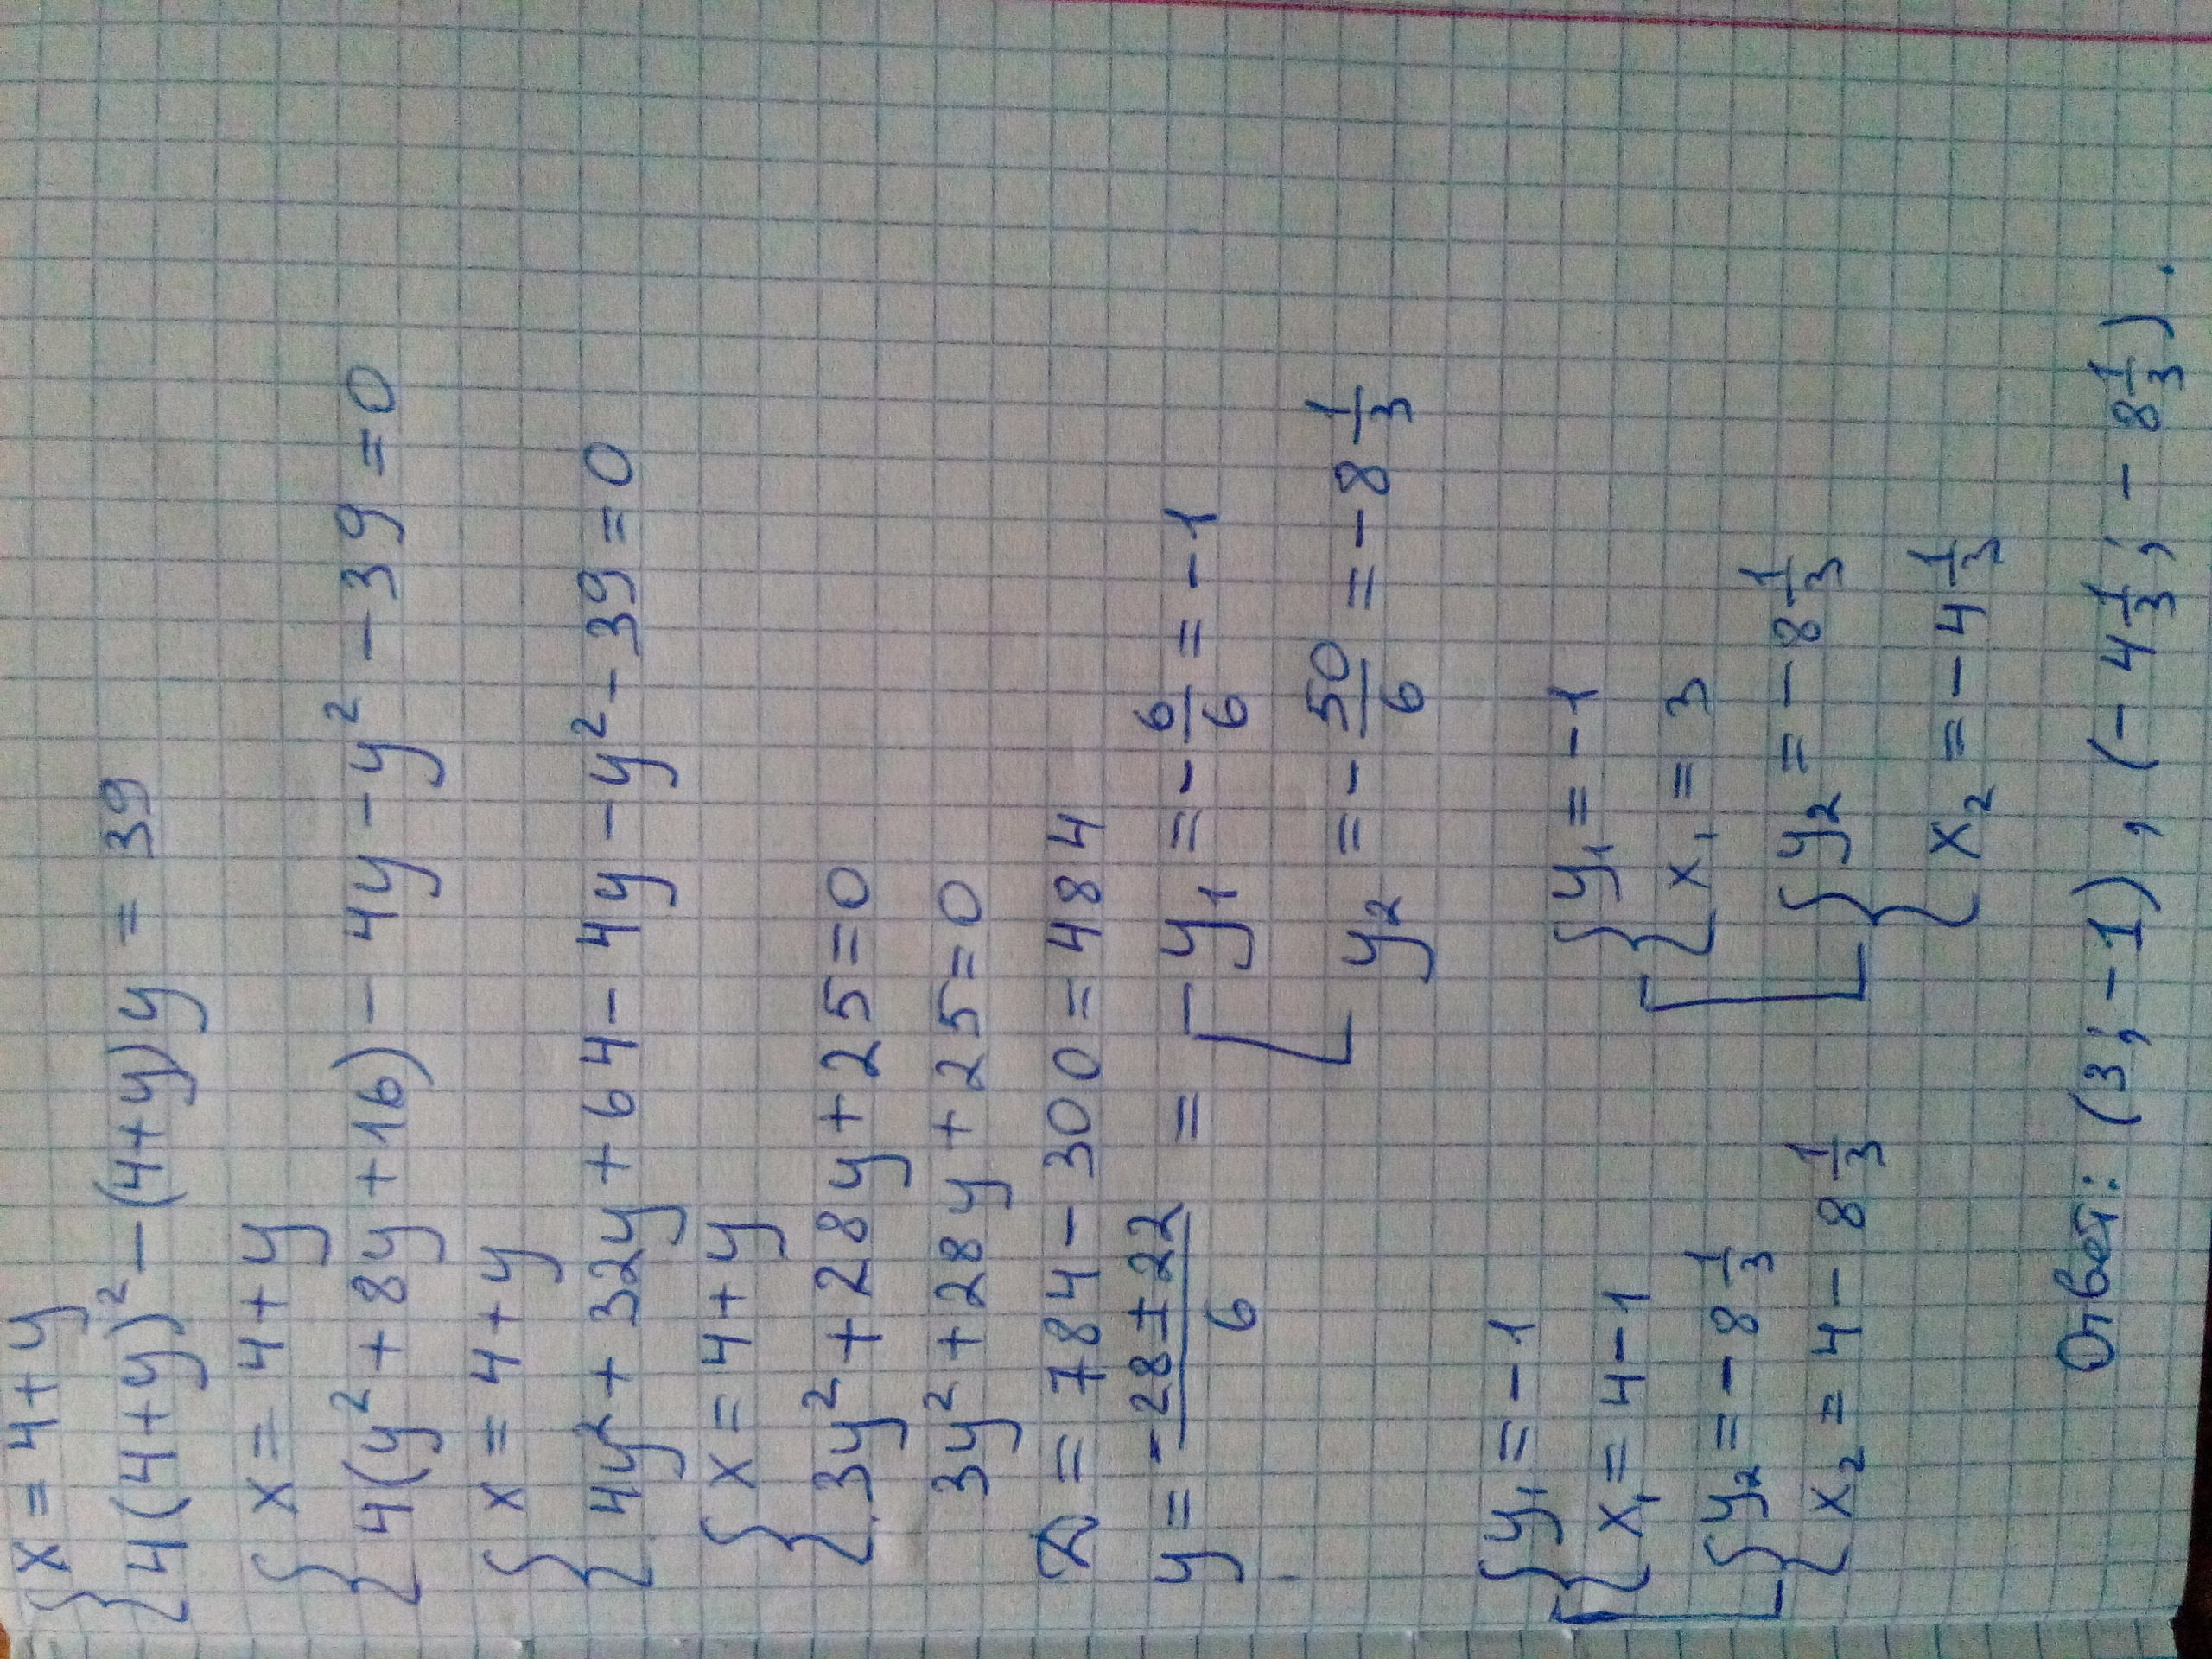 {x = 4 + y
{4(4+y)² - (4+y)y = 39
{x = 4 + y
{4(y² + 8y + 16) - 4y - y² - 39 = 0
{x = 4 + y
{4y² + 32y + 64 - 4y - y² - 39 = 0
{x = 4 + y
{3y² + 28y + 25 = 0
3y² + 28y + 25 = 0
D = 784 - 300 = 484
y = (-28 ± 22)/6 = [y₁ = -6/6 = -1
[y₂ = -50/6 = -8 1/3
[{y₁ = -1
{x₁ = 4 - 1
[{y₂ = -8 1/3
{x₂ = 4 - 8 1/3
[{y₁ = -1
{x₁ = 3
[{y₂ = -8 1/3
{x₂ = -4 1/3
Ответ: (3; -1), (-4 1/3; -8 1/3).